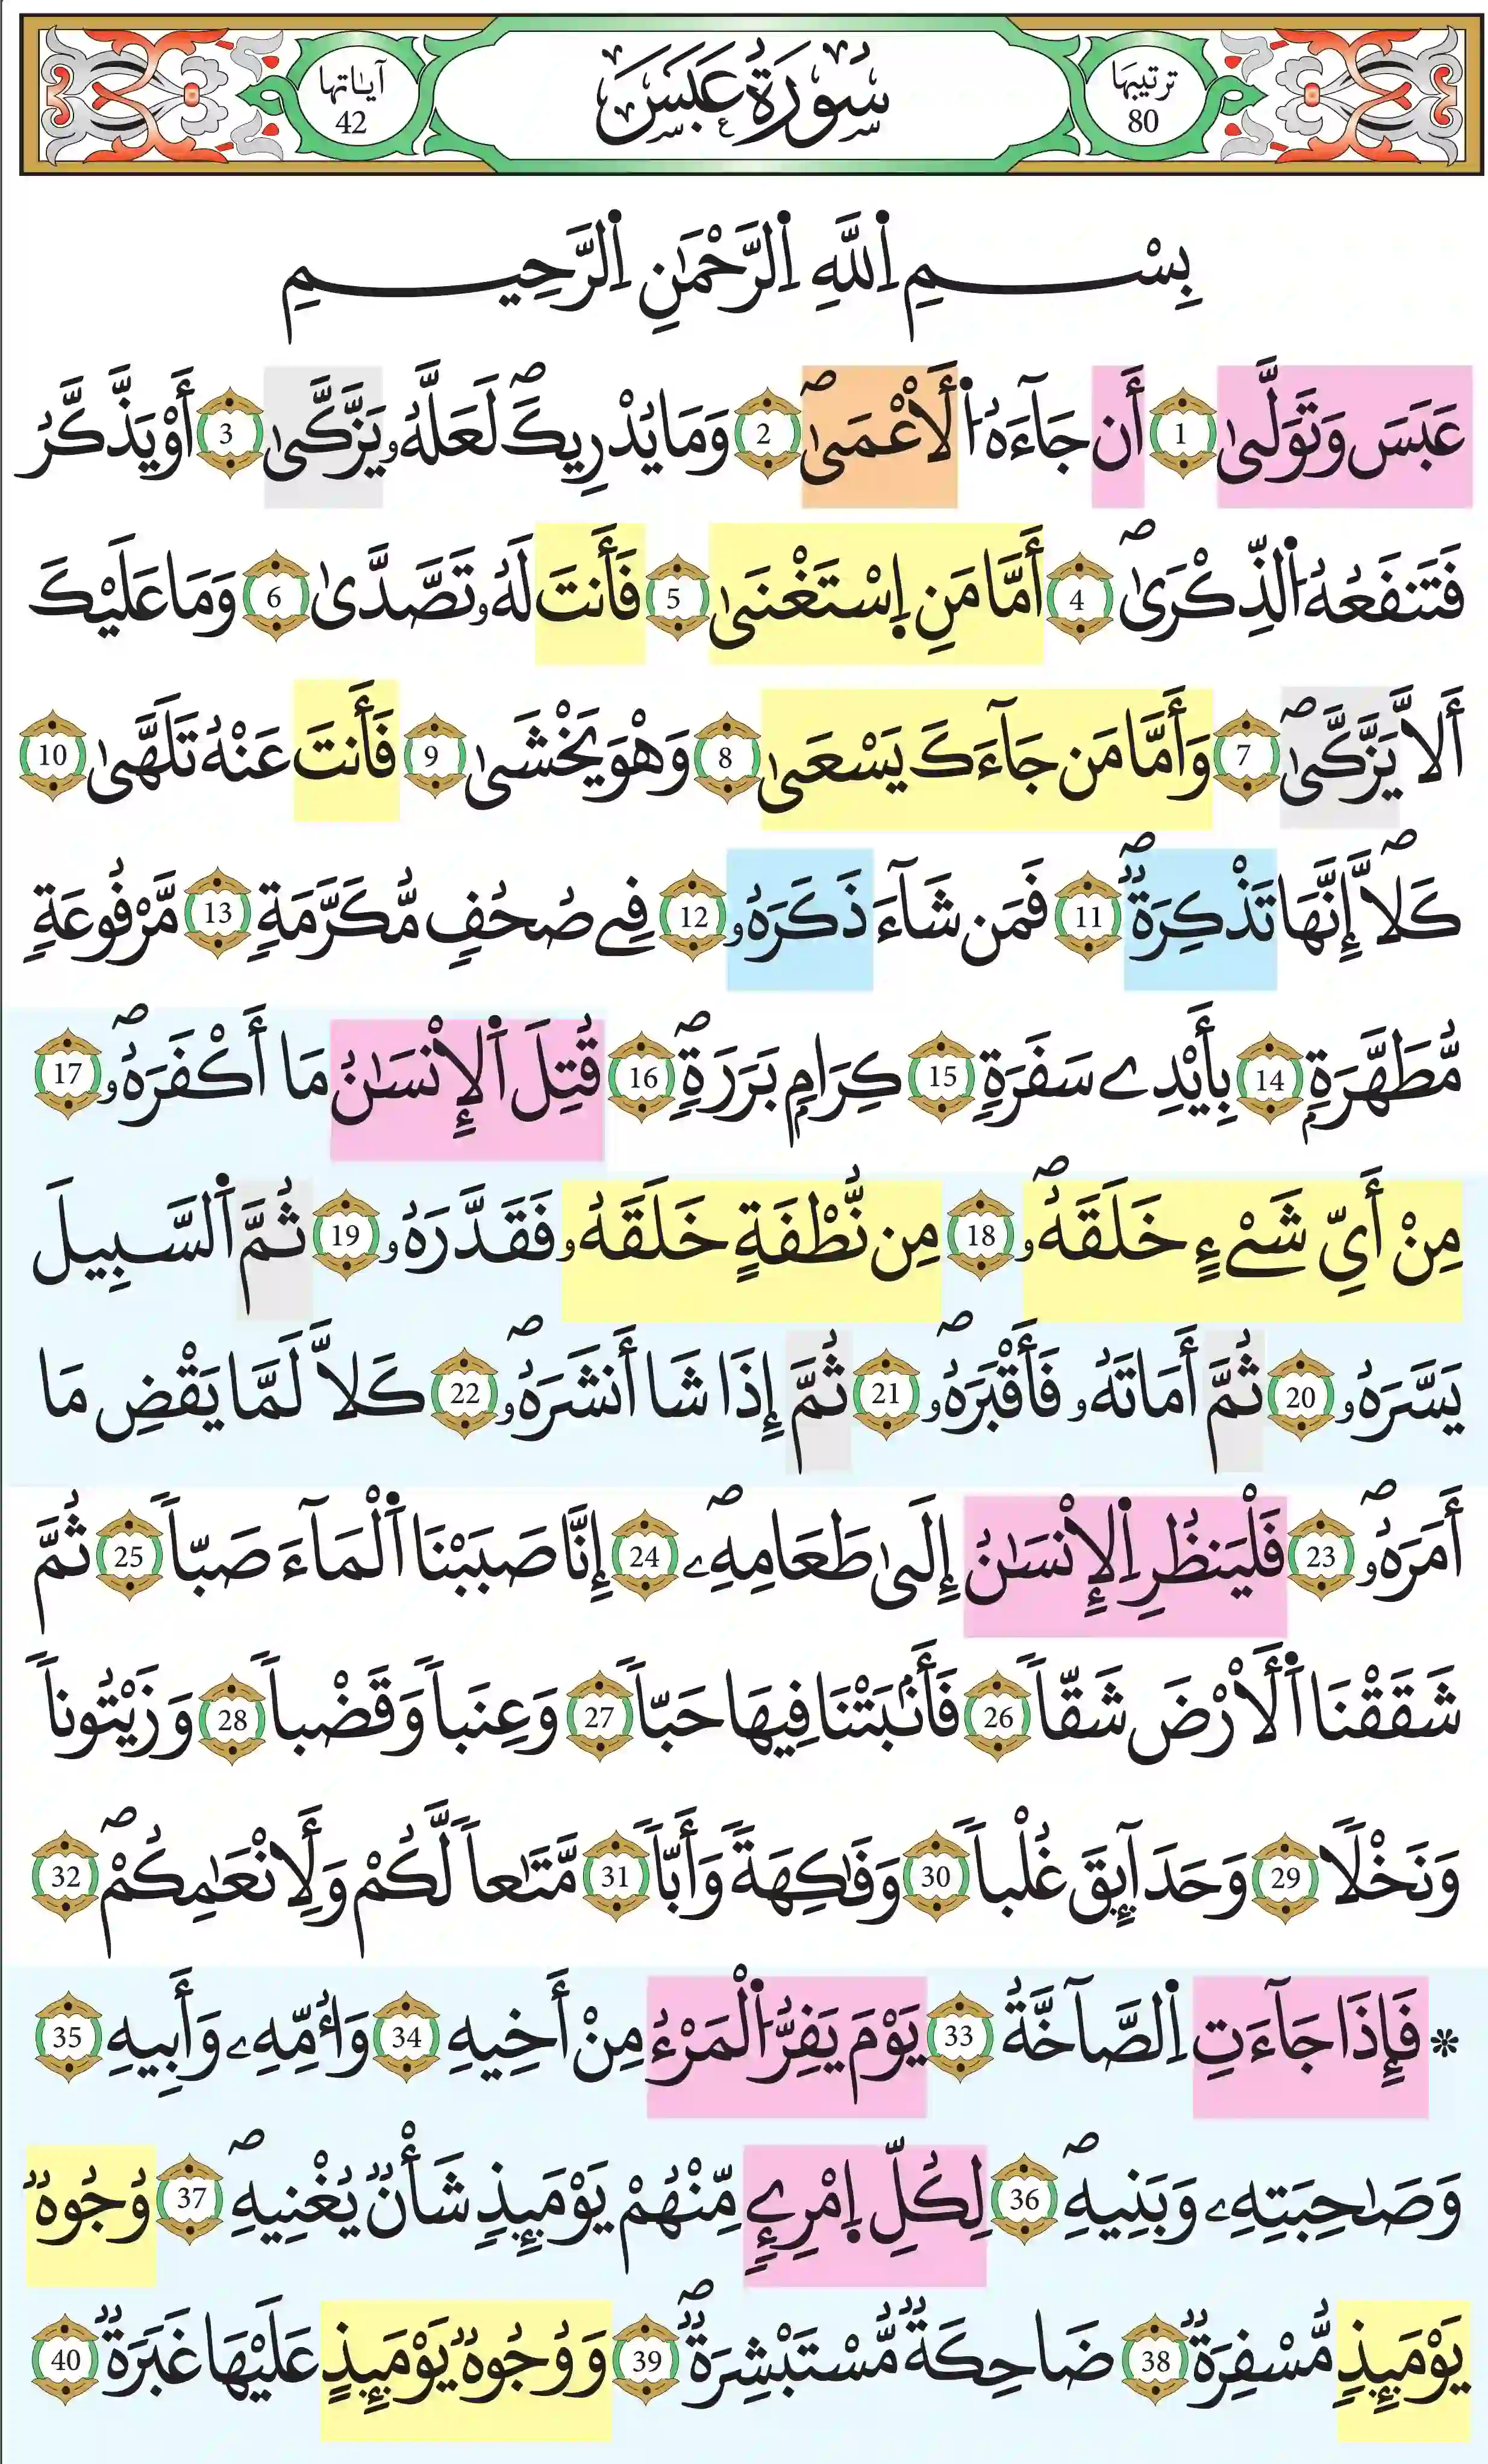 ترتيبها
80
سُورَةُ عَبَسَ
آياتها
42
بِسْمِ اِ۬للَّهِ اِ۬لرَّحْمَٰنِ اِ۬لرَّحِيمِ
عَبَسَ وَتَوَلَّىٰ 1 أَن جَآءَهُ اُ۬لَاعْمَىٰۖ 2 وَمَا يُدْرِيكَۖ لَعَلَّهُۥ يَزَّكَّىٰ 3 أَوْ يَذَّكَّرُ
فَتَنفَعُهُ اُ۬لذِّكْرَىٰۖ 4 أَمَّا مَنِ اِ۪سْتَغْنَىٰ 5 فَأَنتَ لَهُۥ تَصَّدَّىٰ 6 وَمَا عَلَيْكَ
أَلَّا يَزَّكَّىٰۖ 7 وَأَمَّا مَن جَآءَكَ يَسْعَىٰ 8 وَهْوَ يَخْشَىٰ 9 فَأَنتَ عَنْهُ تَلَهَّىٰ 10
كَلَّاۖ إِنَّهَا تَذْكِرَةٌۖ 11 فَمَن شَآءَ ذَكَرَهُۥ 12 فِے صُحُفٍ مُّكَرَّمَةٍ 13 مَّرْفُوعَةٍ
مُّطَهَّرَةِۢ 14 بِأَيْدِے سَفَرَةٍ 15 كِرَامِۢ بَرَرَةٍۖ 16 قُتِلَ اَ۬لْإِنسَٰنُ مَا أَكْفَرَهُۥۖ 17
مِنْ أَيِّ شَےْءٍ خَلَقَهُۥۖ 18 مِن نُّطْفَةٍ خَلَقَهُۥ فَقَدَّرَهُۥ 19 ثُمَّ اَ۬لسَّبِيلَ
يَسَّرَهُۥ 20 ثُمَّ أَمَاتَهُۥ فَأَقْبَرَهُۥۖ 21 ثُمَّ إِذَا شَا أَنشَرَهُۥۖ 22 كَلَّا لَمَّا يَقْضِ مَا
أَمَرَهُۥۖ 23 فَلْيَنظُرِ اِ۬لْإِنسَٰنُ إِلَىٰ طَعَامِهِۦۖ 24 إِنَّا صَبَبْنَا اَ۬لْمَآءَ صَبّاٗ 25 ثُمَّ
شَقَقْنَا اَ۬لْأَرْضَ شَقّاٗ 26 فَأَنۢبَتْنَا فِيهَا حَبّاٗ 27 وَعِنَباٗ وَقَضْباٗ 28 وَزَيْتُوناٗ
وَنَخْلًا 29 وَحَدَآئِقَ غُلْباٗ 30 وَفَٰكِهَةً وَأَبّاٗ 31 مَّتَٰعاٗ لَّكُمْ وَلِأَنْعَٰمِكُمْۖ 32
* فَإِذَا جَآءَتِ اِ۬لصَّآخَّةُ 33 يَوْمَ يَفِرُّ اُ۬لْمَرْءُ مِنْ أَخِيهِ 34 وَأُمِّهِۦ وَأَبِيهِ 35
وَصَٰحِبَتِهِۦ وَبَنِيهِۖ 36 لِكُلِّ اِ۪مْرِےٕٖ مِّنْهُمْ يَوْمَئِذٖ شَأْنٌ يُغْنِيهِۖ 37 وُجُوهٌ
يَوْمَئِذٖ مُّسْفِرَةٌ 38 ضَاحِكَةٌ مُّسْتَبْشِرَةٌۖ 39 وَوُجُوهٌ يَوْمَئِذٍ عَلَيْهَا غَبَرَةٌ 40